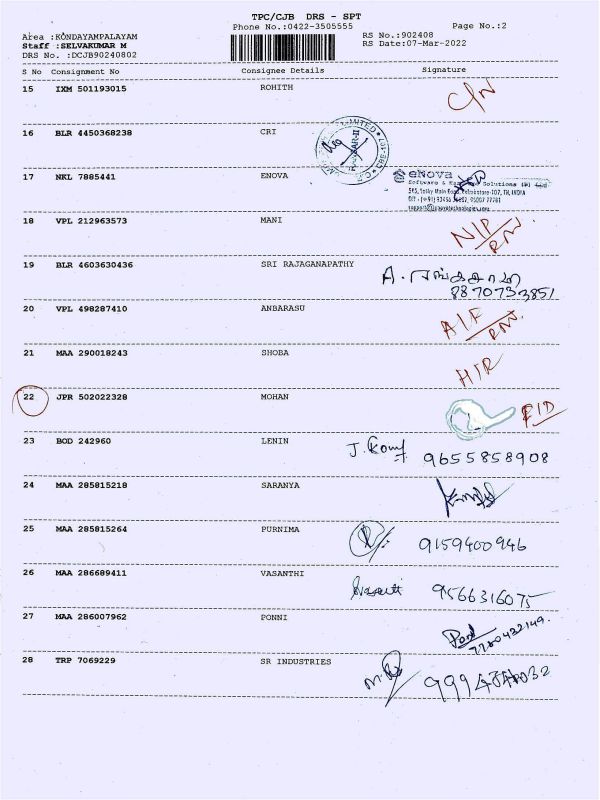 TPC/CJB DRS - SPT
Phone No.:0422-3505555
Page No.:2
Area :KONDAYAMPALAYAM
RS No.:902408
Staff :SELVAKUMAR M
RS Date:07-Mar-2022
DRS No. :DCJB90240802
S No Consignment No Consignee Details Signature
15 IXM 501193015 ROHITH C/N
16 BLR 4450368238 CRI
17 NKL 7885441 ENOVA
eNova
Software & Solutions
18 VPL 212963573 MANI
19 BLR 4603630436 SRI RAJAGANAPATHY
8870733851
20 VPL 498287410 ANBARASU
21 MAA 290018243 SHOBA
22 JPR 502022328 MOHAN
23 BOD 242960 LENIN 9655858908
24 MAA 285815218 SARANYA
25 MAA 285815264 PURNIMA 9159400946
26 MAA 286689411 VASANTHI 9566316075
27 MAA 286007962 PONNI
28 TRP 7069229 SR INDUSTRIES